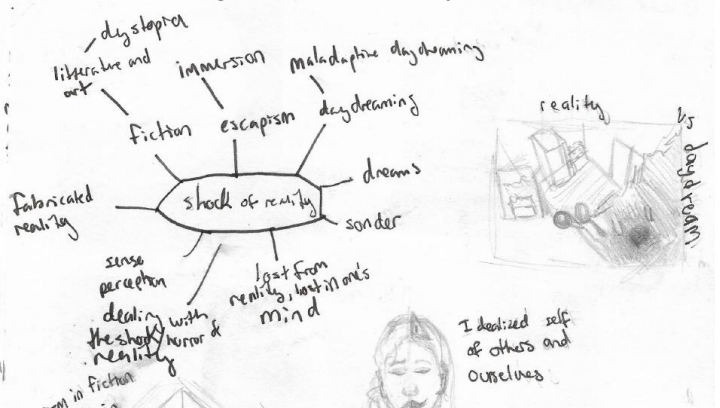 dystopia
litterature and
art
immersion
maladaptive daydreaming
fiction
escapism
daydreaming
dreams
shock of reality
Fabricated
reality
sonder
sense
perception
lost from
reality, lost in one's
mind
dealing with
the shock / horror of
reality
in fiction
reality
vs daydream
Idealized self
of others and
ourselves